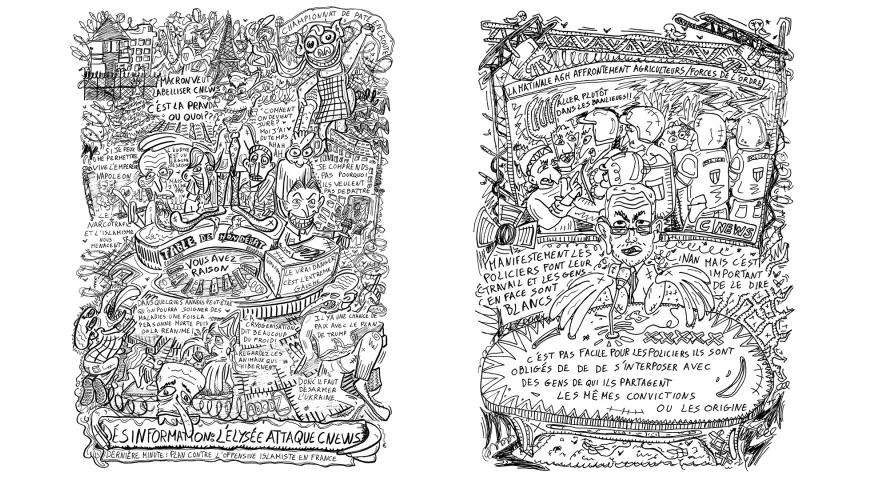 CHAMPIONNAT DE
MACRON VEUT
LABELLISER CNEWS
C'EST LA PRAVDA
OU QUOI???
"COMMENT
ON DEVIENT
JURÉ?"
MOI J'AI
DU TEMPS
AHAH
AH
SI JE PEUX
ME PERMETTRE
VIVE L'EMPEREUR
NAPOLEON
JE COMPRENDS
PAS POURQUOI
ILS VEULENT
PAS DEBATTRE
LE
NARCOTRAFIC
ET L'ISLAMISME
NOUS
MENACENT
TABLE DE NON DÉBAT
VOUS AVEZ
RAISON
LE VRAI DANGER
C'EST L'EXTREME
GAUCHE
DANS QUELQUES ANNÉES PEUT ÊTRE
QU'ON POURRA SOIGNER DES
MALADIES UNE FOIS LA
PERSONNE MORTE PUIS
ON LA REANIME!
LA
CRYOGENISATION
DIT BEAUCOUP
DU FROID!
REGARDEZ LES
ANIMAUX QUI
HIBERNENT
IL Y A UNE CHANCE DE
PAIX AVEC LE PLAN
DE TRUMP
DONC IL FAUT
DÉSARMER
L'UKRAINE
DÉSINFORMATION: L'ELYSÉE ATTAQUE CNEWS
DERNIÈRE MINUTE: PLAN CONTRE L'OFFENSIVE ISLAMISTE EN FRANCE
LA MATINALE AGH AFFRONTEMENT AGRICULTEURS/FORCES DE L'ORDRE
ALLER PLUTÔT
DANS LES BANLIEUES!!
POLICE
POLICE
CNEWS
MANIFESTEMENT LES
POLICIERS FONT LEUR
TRAVAIL ET LES GENS
EN FACE SONT
BLANCS
NAN MAIS C'EST
IMPORTANT
DE LE DIRE
C'EST PAS FACILE POUR LES POLICIERS ILS SONT
OBLIGÉS DE DE DE S'INTERPOSER AVEC
DES GENS DE QUI ILS PARTAGENT
LES MÊMES CONVICTIONS
OU LES ORIGINE